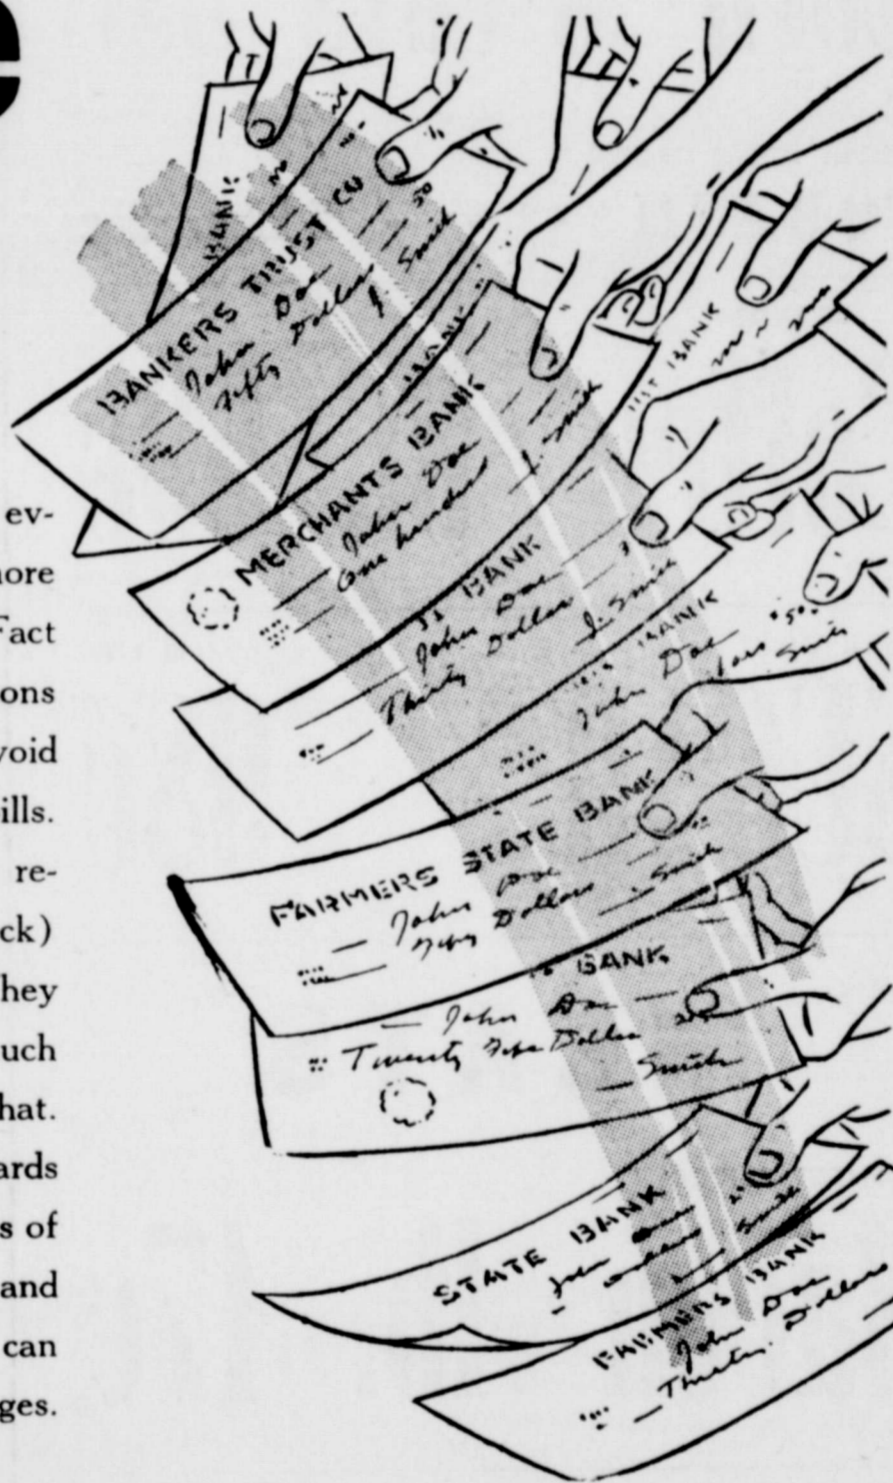 e
ev-
ore
Fact
ons
void
ills.
re-
ck)
hey
uch
hat.
ards
s of
and
can
ges.
BANK
BANKERS TRUST CO
50
John Doe
Fifty Dollars
J. Smith
BANK
MERCHANTS BANK
John Doe
One hundred
J. Smith
1ST BANK
BANK
John Doe
Thirty Dollars
J. Smith
BANK
John Doe
50
Smith
FARMERS STATE BANK
John Doe
Fifty Dollars
Smith
BANK
John Doe
Twenty Five Dollars
Smith
STATE BANK
John
Smith
FARMERS BANK
John Doe
Thirty Dollars